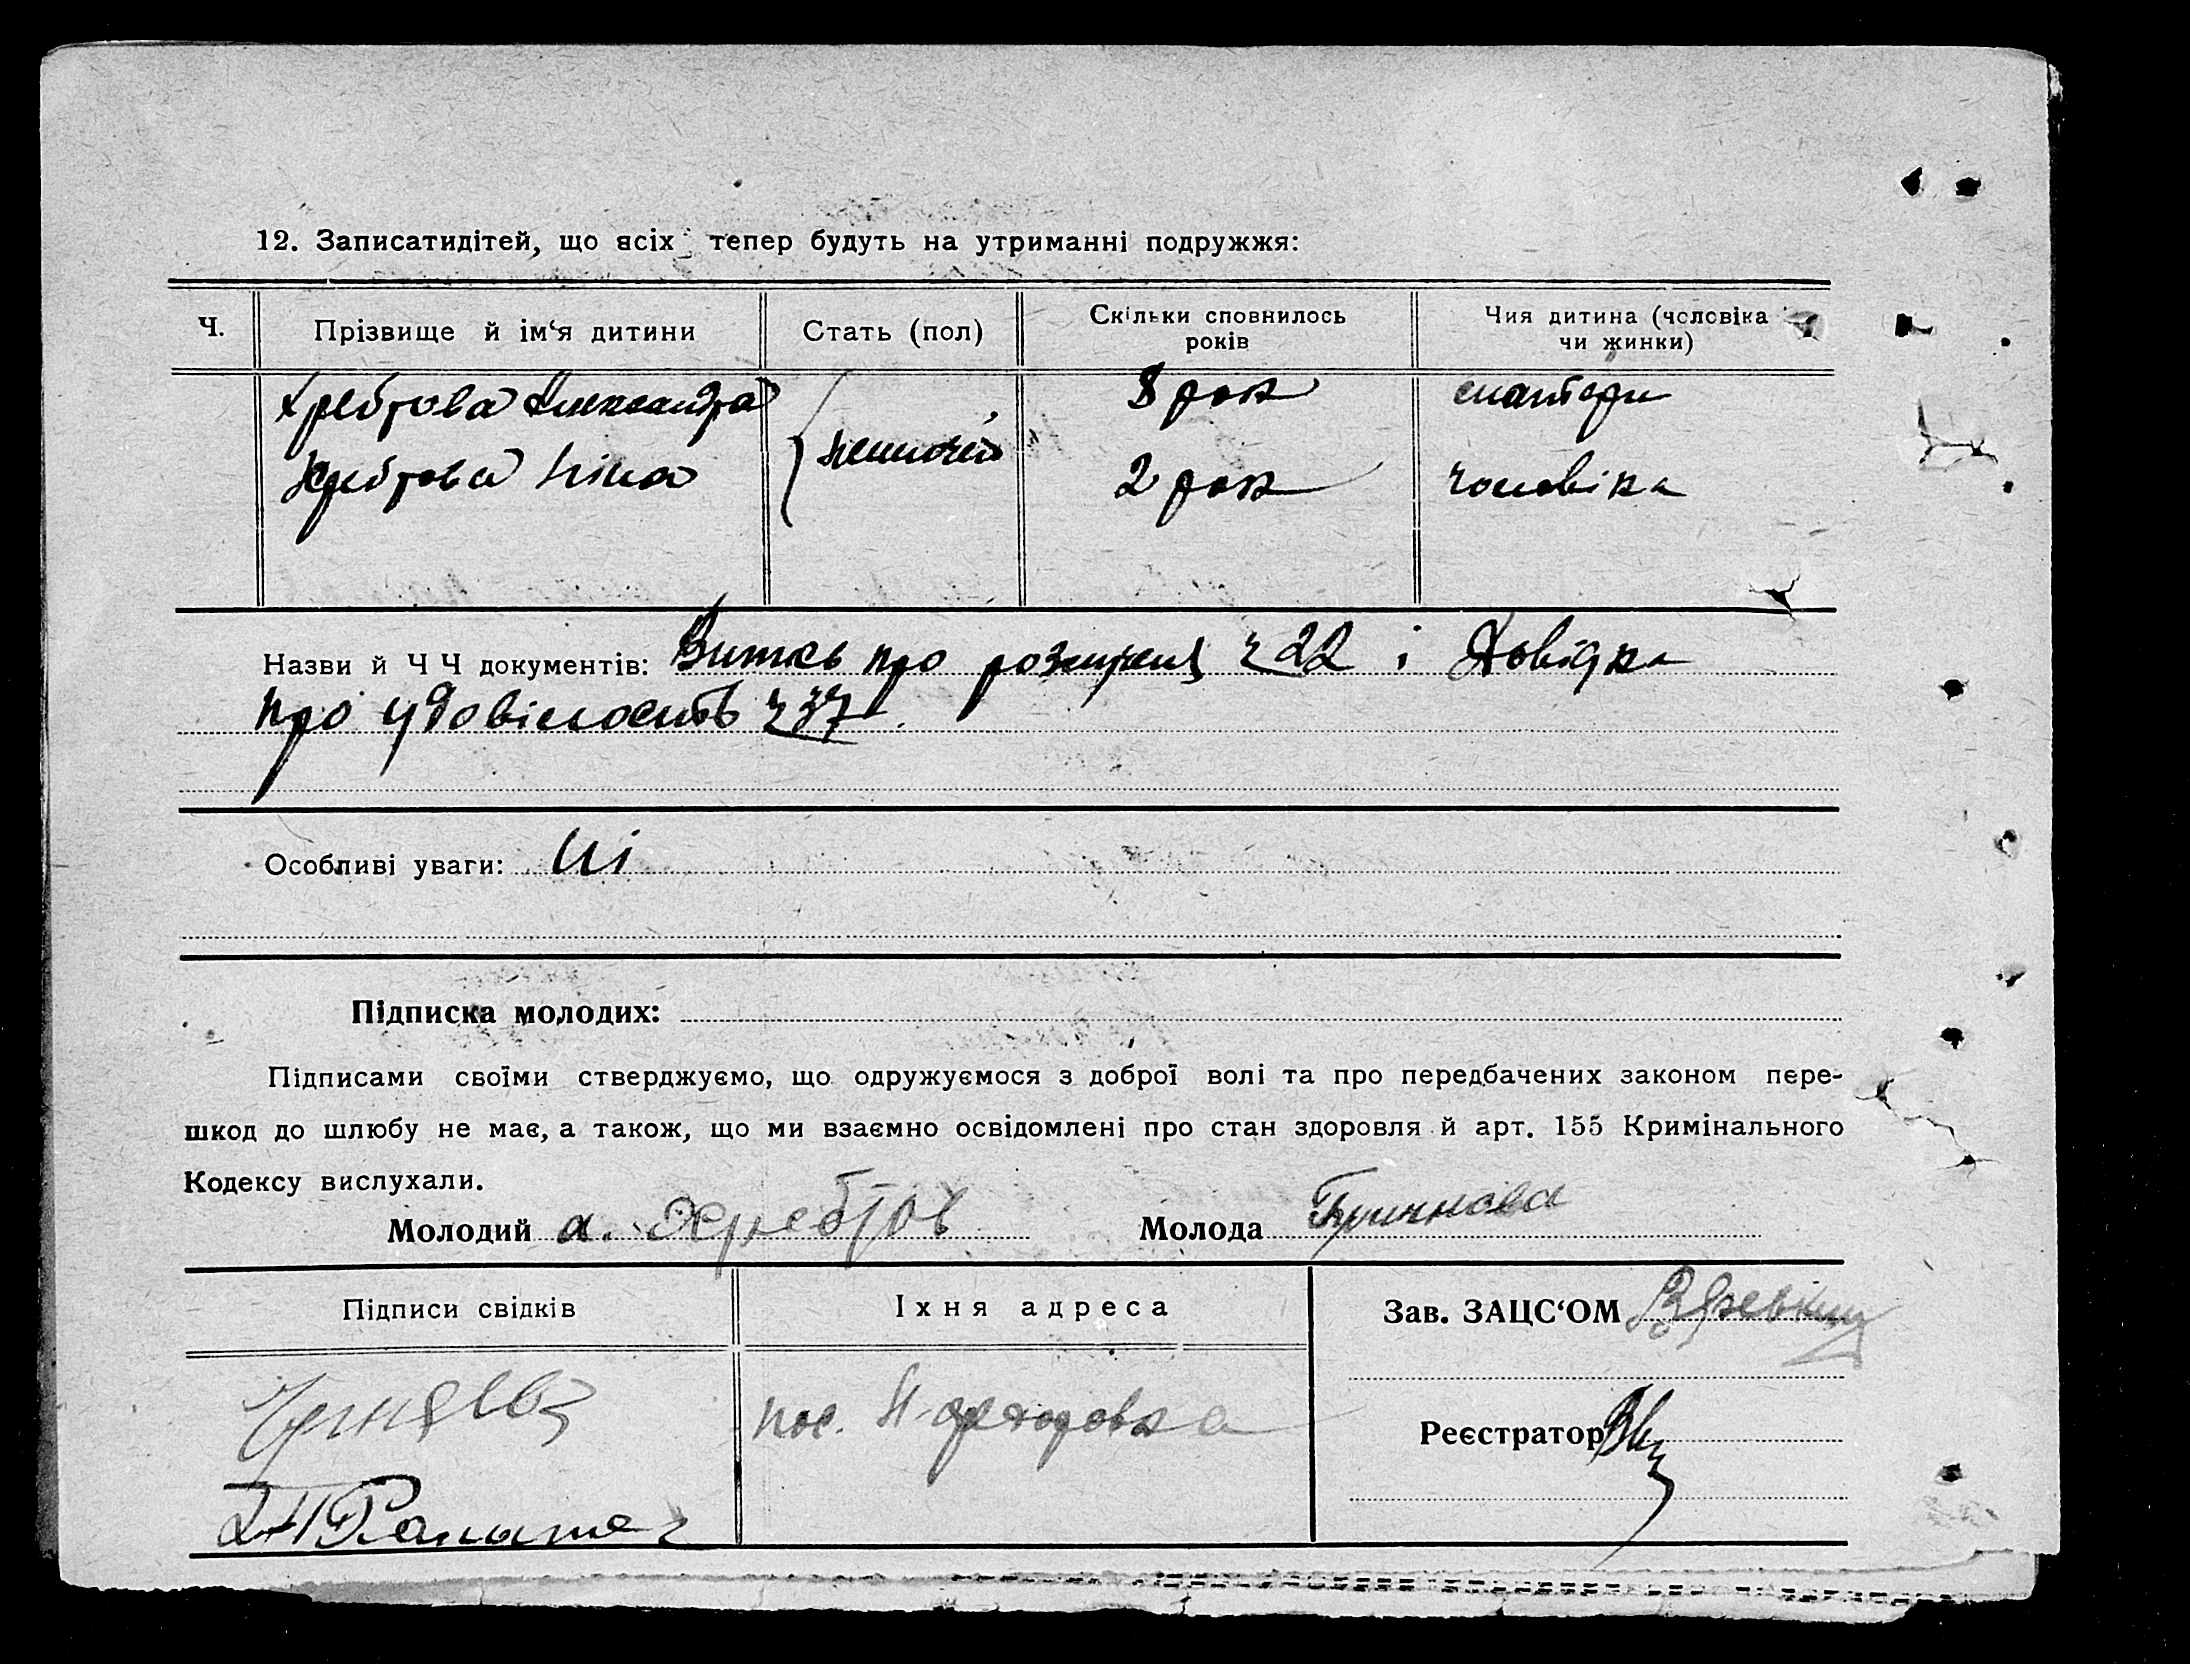 12. Записатидітей, що всіх тепер будуть на утриманні подружжя:
Ч. Прізвище й ім‘я дитини Стать (пол) Скільки сповнилось років Чия дитина (чоловіка чи жинки)
Хребтова Александра 8 рок матери
жиночій
Хребтова Ніна 2 рок чоловіка
Назви й Ч Ч документів: Витяг про розлучен ч 22 і Довідка
про удовілость ч 37
Особливі уваги: Ні
Підписка молодих:
Підписами своїми стверджуємо, що одружуємося з доброї волі та про передбачених законом пере-
шкод до шлюбу не має, а також, що ми взаємно освідомлені про стан здоровля й арт. 155 Кримінального
Кодексу вислухали.
Молодий а. Хребтов Молода
Підписи свідків Їхня адреса Зав. ЗАЦС‘ОМ
пос.
Реєстратор